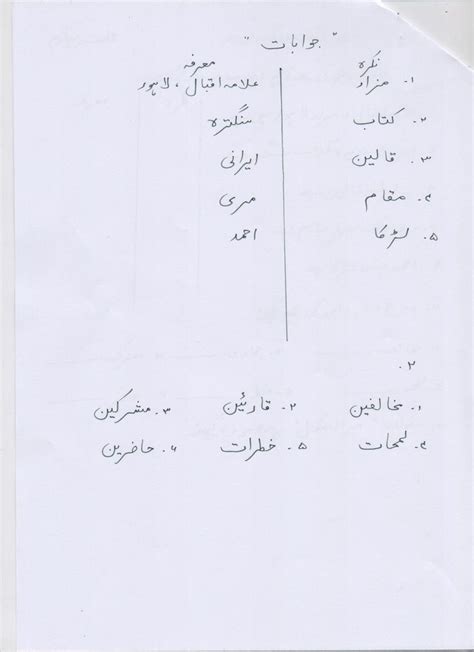 "جوابات"
نکرہ معرفہ
۱۔ مزار علامہ اقبال، لاہور
۲۔ کتاب سنگترہ
۳۔ قالین ایرانی
۴۔ مقام مری
۵۔ لڑکا احمد
۲۔
۱۔ مخالفین ۲۔ قارئین ۳۔ مشرکین
۴۔ لمحات ۵۔ خطرات ۶۔ حاضرین